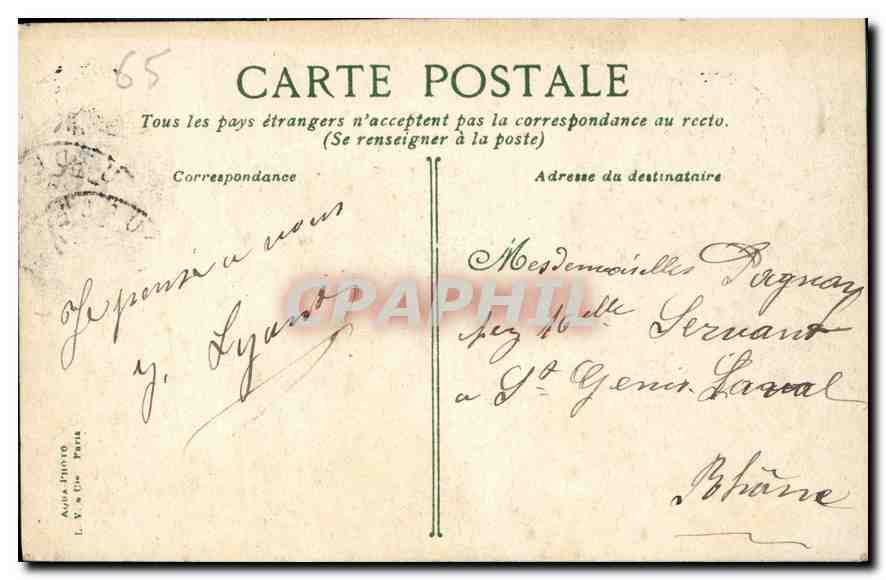 65
CARTE POSTALE
Tous les pays étrangers n'acceptent pas la correspondance au recto.
(Se renseigner à la poste)
Correspondance
Adresse du destinataire
Je pense a vous
y. Lyons
Mesdemoiselles Pagnay
chez Melle Servant
a St Genis. Laval
Rhône
AQUA PHOTO
L. V. & Cie Paris
CPAPHIL